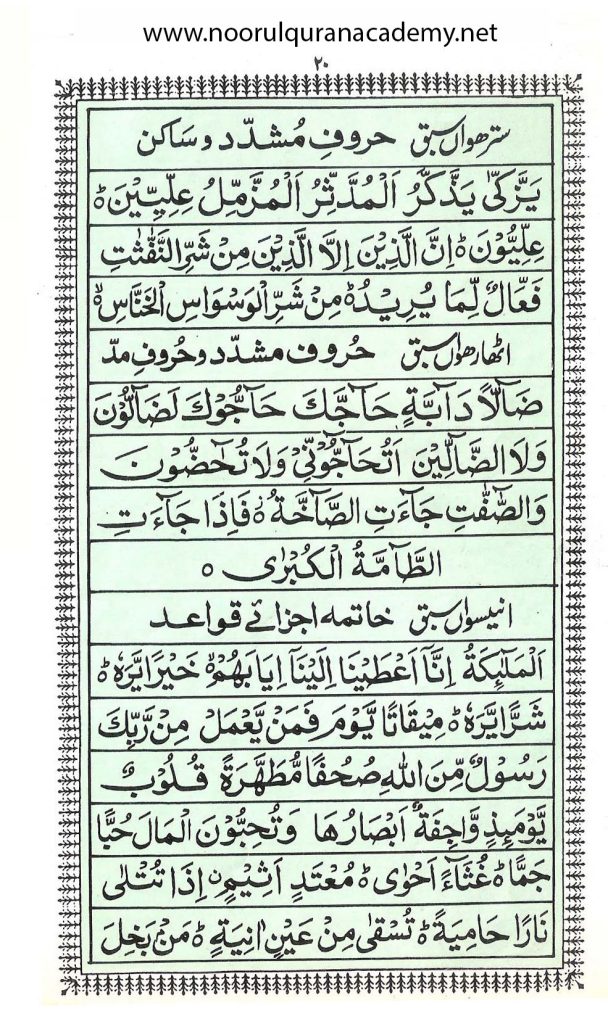 www.noorulquranacademy.net
٢٠
سترھواں سبق حروفِ مُشدّد و ساکن
يَزَّكّٰى يَذَّكَّرُ اَلْمُدَّثِّرُ اَلْمُزَّمِّلُ عِلِّيِّيْنَ ؕ
عِلِّيُّوْنَ ؕ اِنَّ الَّذِيْنَ اِلَّا الَّذِيْنَ مِنْ شَرِّ النَّفّٰثٰتِ
فَعَّالٌ لِّمَا يُرِيْدُ ؕ مِنْ شَرِّ الْوَسْوَاسِ الْخَنَّاسِ ۙ
اٹھارھواں سبق حُروف مشدّد و حُروفِ مدّ
ضَآلًّا دَآبَّةٍ حَآجَّكَ حَآجُّوْكَ لَضَآلُّوْنَ
وَلَا الضَّآلِّيْنَ اَتُحَآجُّوْٓنِّىْ وَلَا تُحٰٓضُّوْنَ
وَالصّٰٓفّٰتِ جَآءَتِ الصَّآخَّةُ ؗ فَاِذَا جَآءَتِ
الطَّآمَّةُ الْكُبْرٰى ○
انیسواں سبق خاتمہ اجرائے قواعد
اَلْمَلٰٓئِكَةُ اِنَّآ اَعْطَيْنَا اِلَيْنَآ اِيَابَهُمْ ۙ خَيْرًا يَّرَهٗ ؕ
شَرًّا يَّرَهٗ ؕ مِيْقَاتًا يَّوْمَ فَمَنْ يَّعْمَلْ مِنْ رَّبِّكَ
رَسُوْلٌ مِّنَ اللّٰهِ صُحُفًا مُّطَهَّرَةً قُلُوْبٌ
يَّوْمَئِذٍ وَّاجِفَةٌ ۙ اَبْصَارُهَا وَتُحِبُّوْنَ الْمَالَ حُبًّا
جَمًّا ؕ غُثَآءً اَحْوٰى ؕ مُعْتَدٍ اَثِيْمٍ ۙ اِذَا تُتْلٰى
نَارًا حَامِيَةً ؕ تُسْقٰى مِنْ عَيْنٍ اٰنِيَةٍ ؕ مَنْۢ بَخِلَ